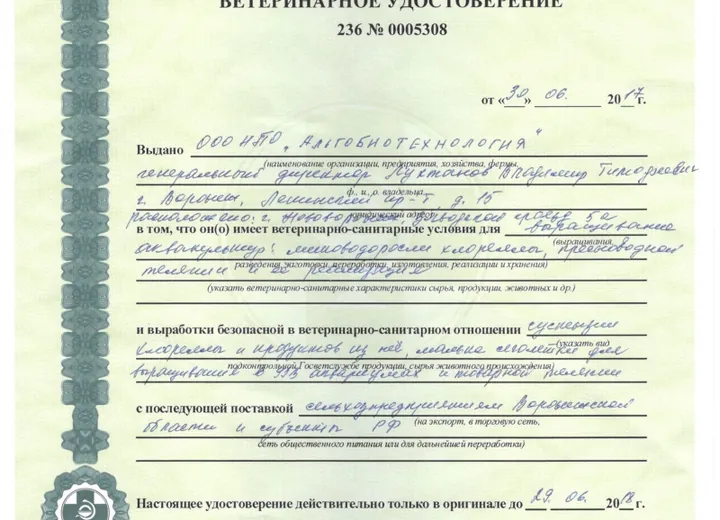 ВЕТЕРИНАРНОЕ УДОСТОВЕРЕНИЕ
236 № 0005308
от «30» 06. 2017г.
Выдано ООО НПО „Альгобиотехнология"
(наименование организации, предприятия, хозяйства, фермы,
генеральный директор Лухтанов Владимир Тимофеевич
ф., и., о. владельца,
г. Воронеж, Ленинский пр-т, д. 15
юридический адрес)
расположено: г.
в том, что он(о) имеет ветеринарно-санитарные условия для выращивание
(выращивания,
аквакультур: микроводоросли хлореллы, пресноводной
разведения, заготовки, переработки, изготовления, реализации и хранения)
теляпии и её реализация
(указать ветеринарно-санитарные характеристики сырья, продукции, животных и др.)
и выработки безопасной в ветеринарно-санитарном отношении суспензии
(указать вид
хлореллы и продуктов из неё, малька сеголетки для
подконтрольной Госветслужбе продукции, сырья животного происхождения)
выращивания в УЗВ аквариумах и товарной теляпии
с последующей поставкой сельхозпредприятиям Воронежской
(на экспорт, в торговую сеть,
области и субъектам РФ
сеть общественного питания или для дальнейшей переработки)
Настоящее удостоверение действительно только в оригинале до 29. 06. 2018г.